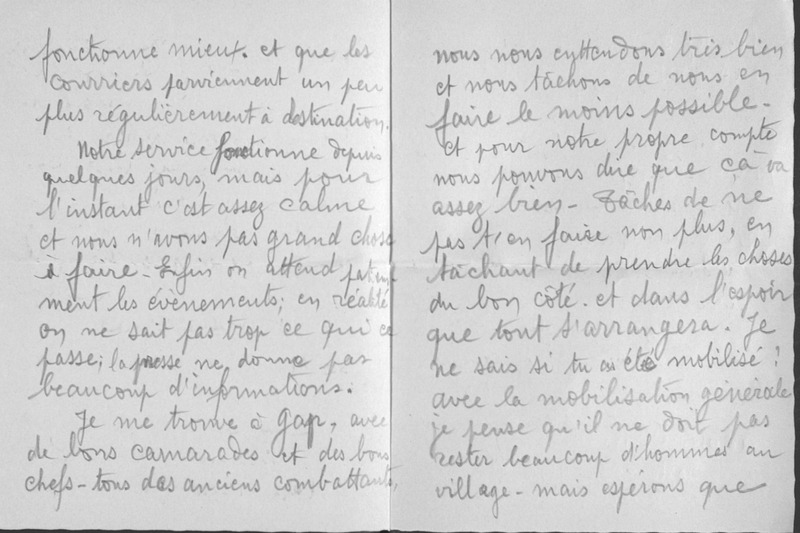 fonctionne mieux. et que les
courriers parviennent un peu
plus régulièrement à destination.
Notre service fonctionne depuis
quelques jours, mais pour
l'instant c'est assez calme
et nous n'avons pas grand chose
à faire - Enfin on attend patiem
ment les évènements; en réalité
on ne sait pas trop ce qui ce
passe; la presse ne donne pas
beaucoup d'informations.
Je me trouve à Gap, avec
de bons camarades et des bons
chefs - tous des anciens combattants,
nous nous enttendons très bien
et nous tâchons de nous en
faire le moins possible -
et pour notre propre compte
nous pouvons dire que çà va
assez bien - Tâches de ne
pas t'en faire non plus, en
tâchant de prendre les choses
du bon côté. et dans l'espoir
que tout s'arrangera. Je
ne sais si tu as été mobilisé?
avec la mobilisation générale
je pense qu'il ne doit pas
rester beaucoup d'hommes au
village - mais espérons que